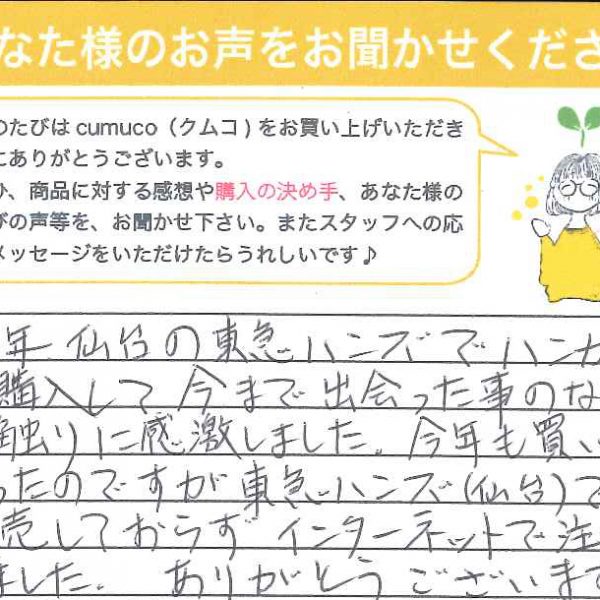 なた様のお声をお聞かせくださ
のたびは cumuco（クムコ）をお買い上げいただき
にありがとうございます。
ひ、商品に対する感想や購入の決め手、あなた様の
びの声等を、お聞かせ下さい。またスタッフへの応
メッセージをいただけたらうれしいです♪
年 仙台の東急ハンズでハンカ
購入して今まで出会った事のな
触りに感激しました。今年も買い
ったのですが東急ハンズ(仙台)で
売しておらず インターネットで注
ました。 ありがとうございます